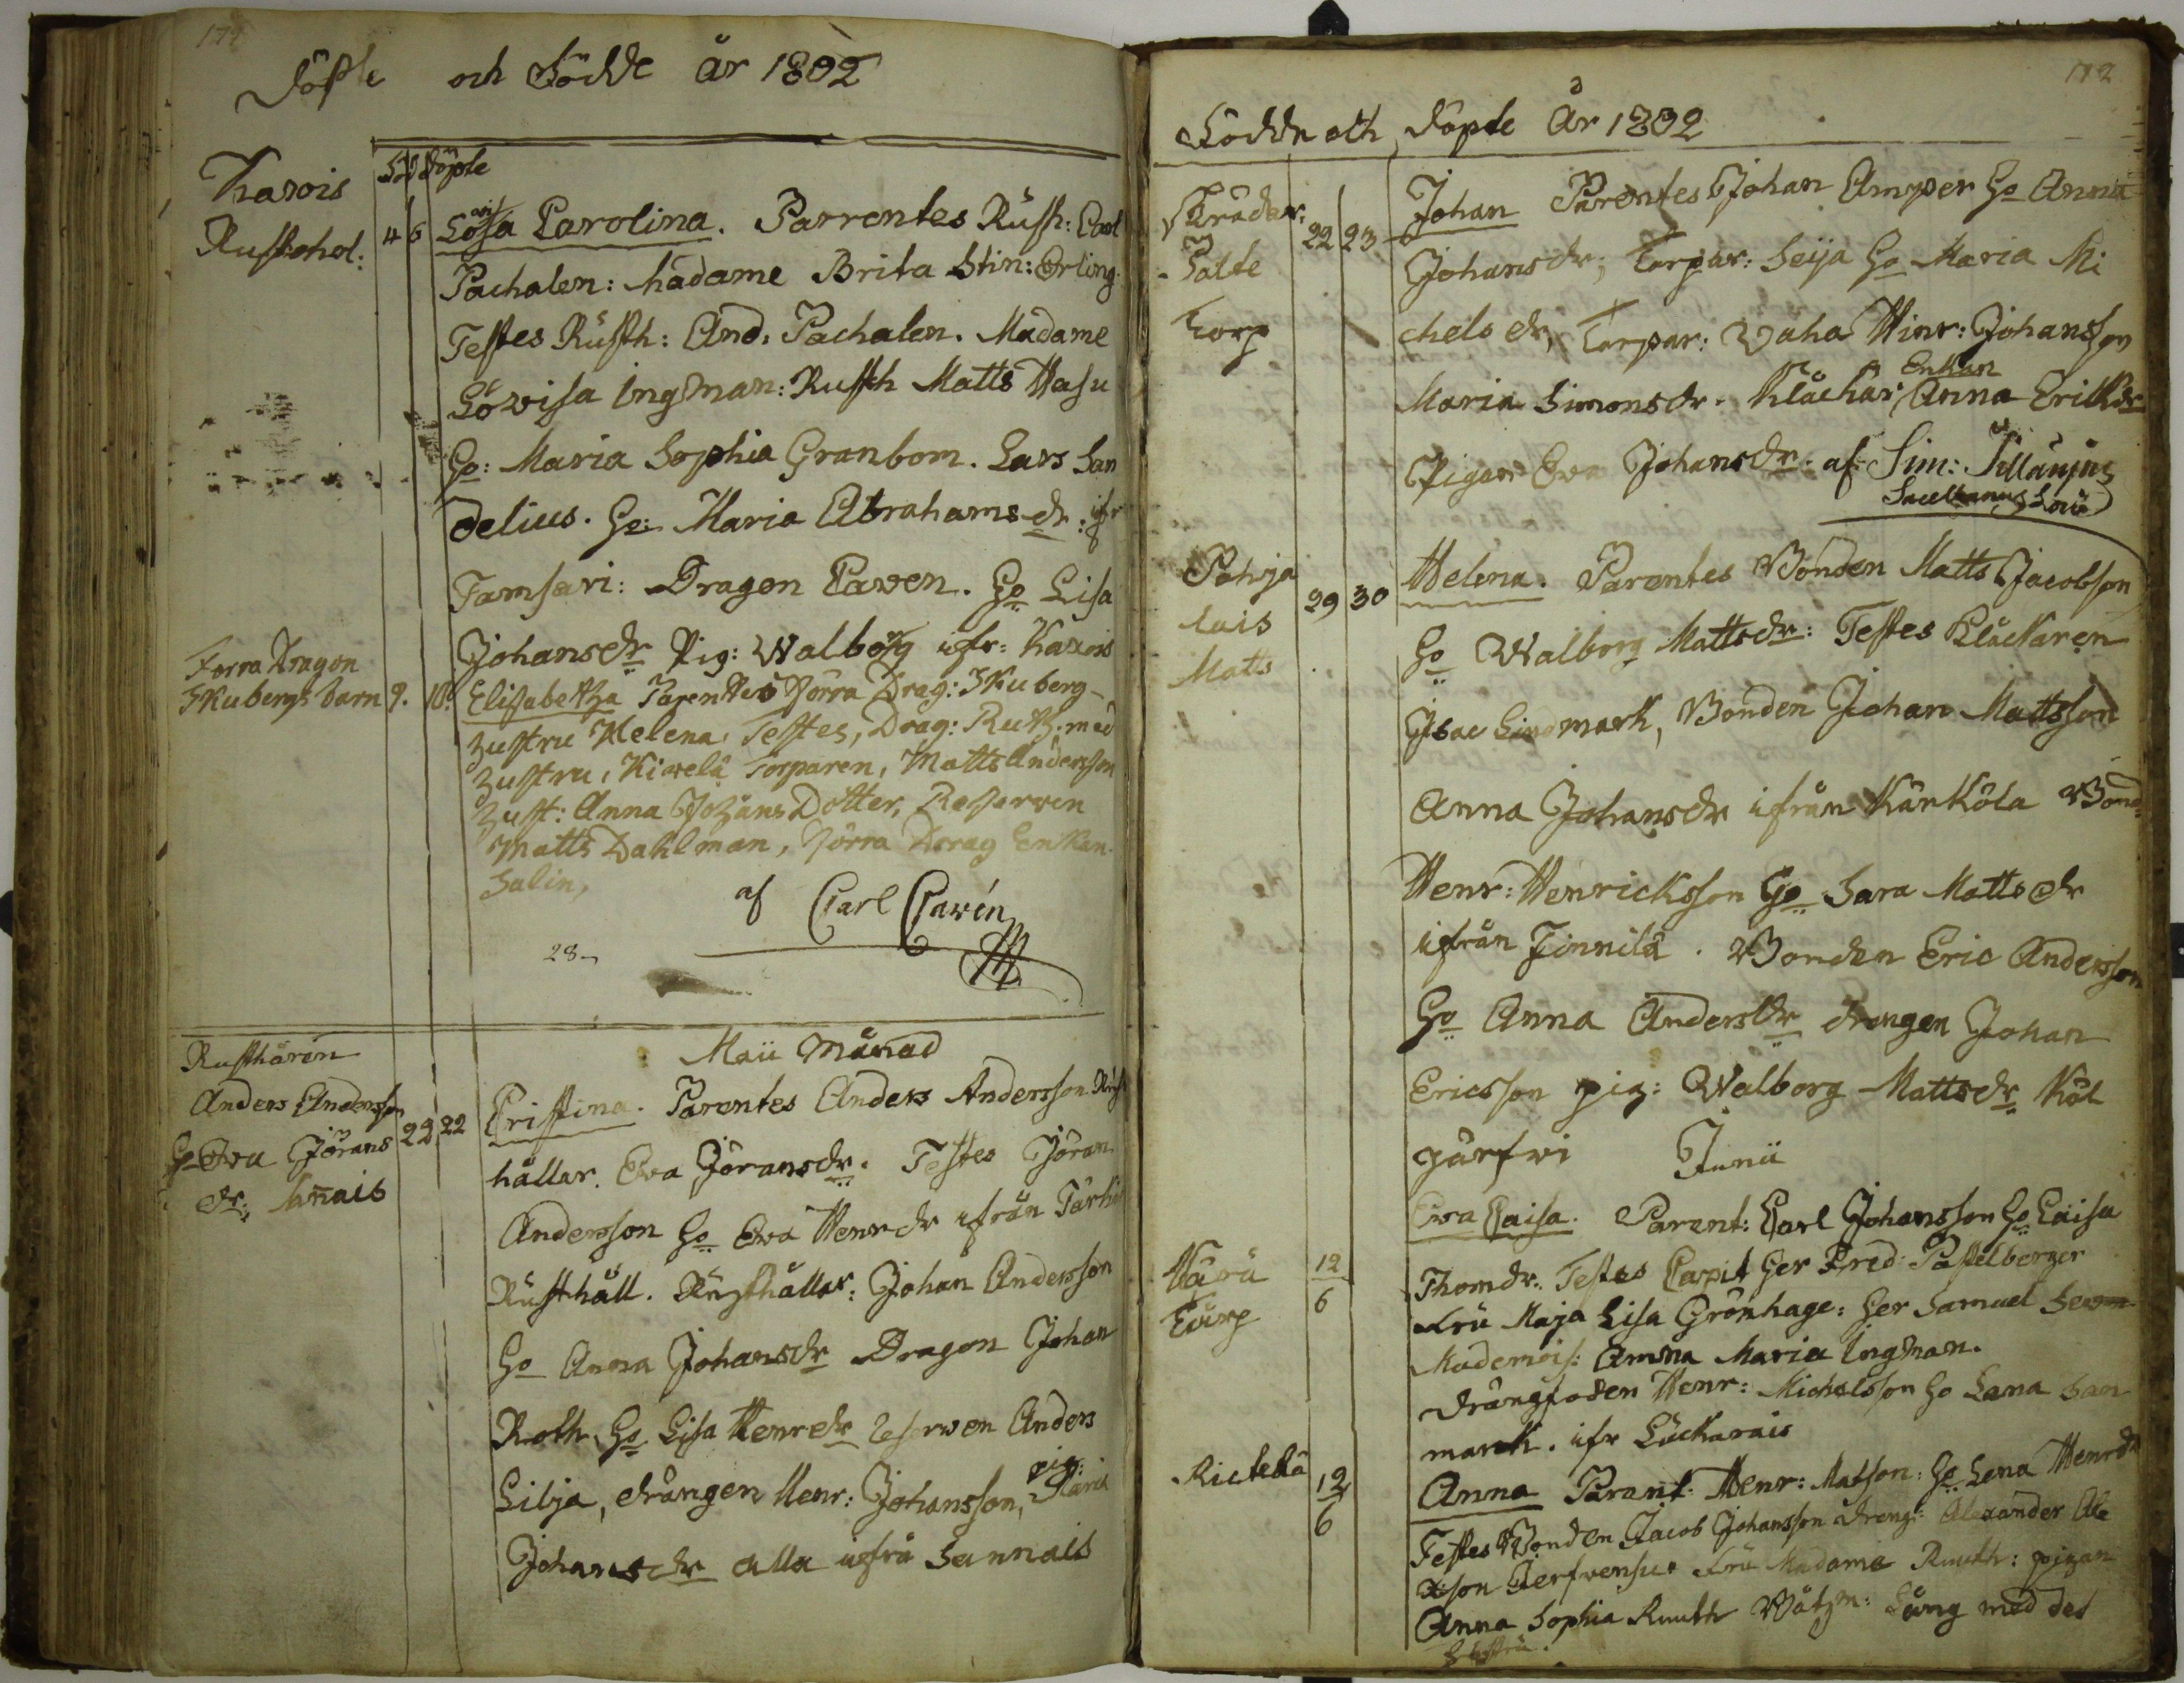 Döpte och Födde år 1802
Karois
Rusthol:
Föd Döpte
4 5 Lovisa Carolina. Parrentes Rusth: Carl
Pachalen: Madame Brita Stin: Erling.
Testes Rusth: And: Pachalen. Madame
Lovisa Ingman: Rusth Matts Hasu
Ho: Maria Sophia Granbom. Lars San
delius. Ho: Maria Abrahamsdr: ifr
Tamsari: Dragon Caven. Ho Lisa
Johansdr Pig: Walborg ifr: Karois
Forra Dragon
Skubergs barn 9. 10. Elisabetha Parentes Förra Drag: Skuberg
hustru Helena, Testes, Drag: Ruth. med
hustru, Kiwelä Torparen, Matts Andersson
hust: Anna Johans Dotter, Reserven
Matts Dahlman, Förra Drag Enkan
Salin,
af Carl Cavén
28
Maii Månad
Rusthåren
Anders Andersson
Ho Eva Jörans
dr: Sannais
22 22 Cristina. Parentes Anders Andersson Rust
hållar. Eva Jöransdr. Testes Jöran
Andersson Ho Eva Henrdr ifrån Tarhis
Rusthåll. Rusthållar: Johan Andersson
Ho Anna Johansdr Dragon Johan
Roth Ho Lisa Henrdr Reserven Anders
Lilja, drängen Henr: Johansson, pig: Maria
Johansdr alla ifrå Sannais
172
Födde och Döpte År 1802
Skrädar:
Palte
Torp
22 23 Johan Parentes Johan Amper Ho Anna
Johansdr; Torpar: Seija Ho Maria Mi
chelsdr, Torpar: Vaha Hinr: Johansson
Maria Simonsdr. Klåckar Enkan Anna Eriksdr
Pigan Eva Johansdr. af Sim: Tillänius
Sacellanus
Pohja
lais
Matts
29 30 Helena. Parentes Bonden Matts Jacobsson
Ho Walborg Mattsdr: Testes Klåckaren
Isac Lindmark, Bonden Johan Mattsson
Anna Johansdr ifrån Kärköla Bond:
Henr: Henricksson Ho Sara Mattsdr
ifrån Finnilä. Bonden Eric Andersson
Ho Anna Andersdr drengen Johan
Ericsson pig: Walborg Mattsdr Köl
järfvi
Junii
Eva Caisa. Parent: Carl Johansson Ho Caisa
12
6
Thomdr. Testes Capit Her Fred: Pastelberger
Fru Maja Lisa Grönhage: Her Samuel
Mademois: Anna Maria Ingman.
Drängfoden Henr: Michelsson Ho Lena San
mark. ifr
Anna Parent: Henr: Matsson: Ho Lena Henrdr
12
6
Testes Bonden Jacob Johansson dreng: Alexander Ale
xsson Fru Madame Ruuth: pigan
Anna Sophia Ruuth Vätzm: Läng med des
hustru.